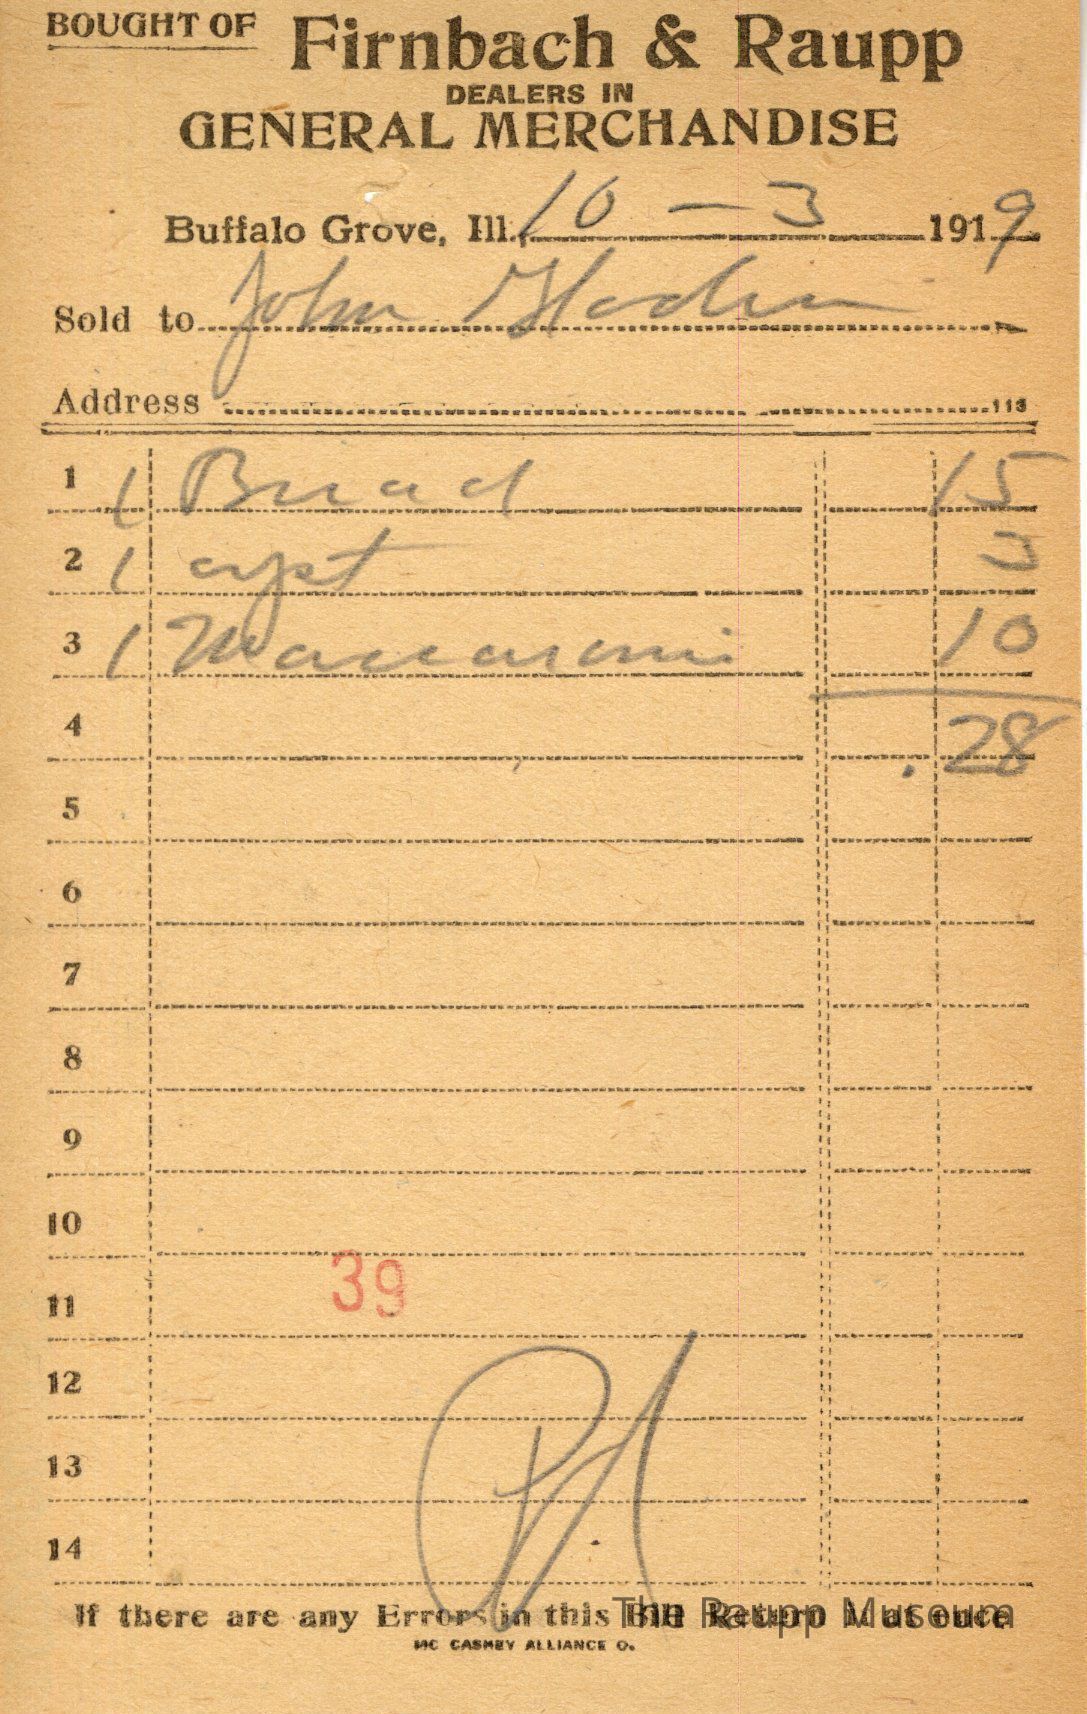 BOUGHT OF Firnbach & Raupp
DEALERS IN
GENERAL MERCHANDISE
Buffalo Grove, Ill., 10 - 3 1919
Sold to John
Address 113
1 1 Bread 15
2 1 3
3 1 Maccaroni 10
4 .28
5
6
7
8
9
10
39
11
12
13
14
If there are any Errors in this Bill Return it at once
The Raupp Museum
MC CASKEY ALLIANCE O.